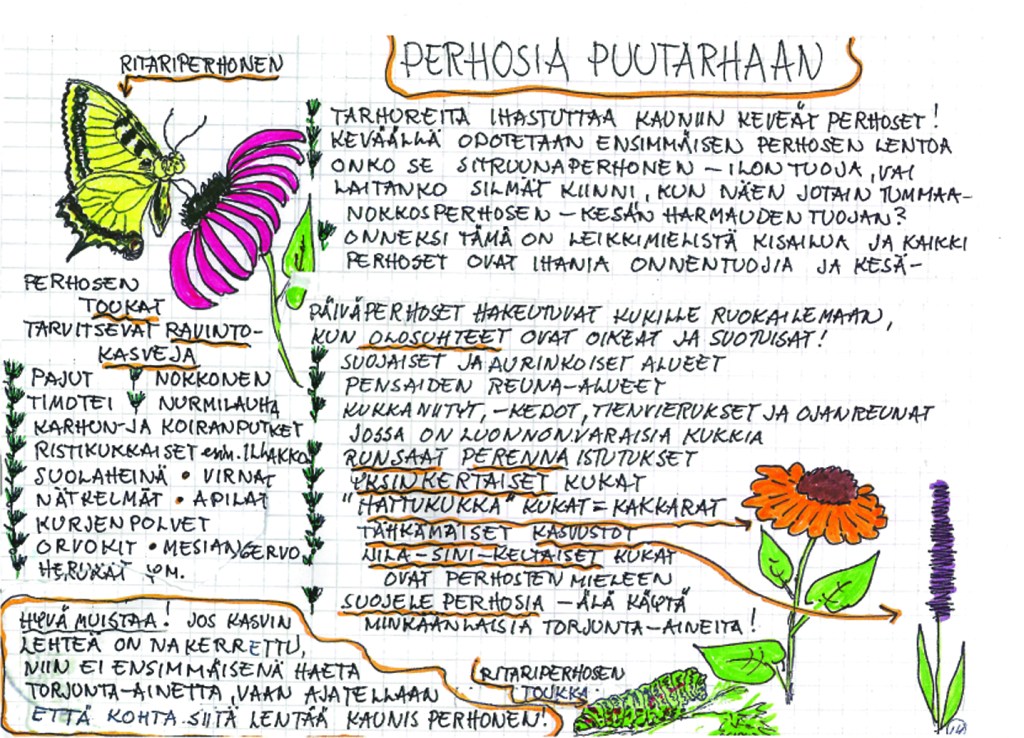 PERHOSIA PUUTARHAAN
RITARIPERHONEN
TARHUREITA IHASTUTTAA KAUNIIN KEVEÄT PERHOSET!
KEVÄÄLLÄ ODOTETAAN ENSIMMÄISEN PERHOSEN LENTOA
ONKO SE SITRUUNAPERHONEN – ILON TUOJA, VAI
LAITANKO SILMÄT KIINNI, KUN NÄEN JOTAIN TUMMAA –
NOKKOSPERHOSEN – KESÄN HARMAUDEN TUOJAN?
ONNEKSI TÄMÄ ON LEIKKIMIELISTÄ KISAILUA JA KAIKKI
PERHOSET OVAT IHANIA ONNENTUOJIA JA KESÄ –
PERHOSEN
TOUKAT
TARVITSEVAT RAVINTO-
KASVEJA
PAJUT NOKKONEN
TIMOTEI NURMILAUHA
KARHUN- JA KOIRANPUTKET
RISTIKUKKAISET esim. ILLAKKO
SUOLAHEINÄ • VIRNAT
NÄTKELMÄT • APILAT
KURJENPOLVET
ORVOKIT • MESIANGERVO
HERUKAT YM.
PÄIVÄPERHOSET HAKEUTUVAT KUKILLE RUOKAILEMAAN,
KUN OLOSUHTEET OVAT OIKEAT JA SUOTUISAT!
SUOJAISET JA AURINKOISET ALUEET
PENSAIDEN REUNA-ALUEET
KUKKANIITYT, -KEDOT, TIENVIERUKSET JA OJANREUNAT
JOSSA ON LUONNONVARAISIA KUKKIA
RUNSAAT PERENNAISTUTUKSET
YKSINKERTAISET KUKAT
"HATTUKUKKA" KUKAT = KAKKARAT
TÄHKÄMÄISET KASVUSTOT
LIILA-SINI-KELTAISET KUKAT
OVAT PERHOSTEN MIELEEN
SUOJELE PERHOSIA – ÄLÄ KÄYTÄ
MINKÄÄNLAISIA TORJUNTA-AINEITA!
HYVÄ MUISTAA! JOS KASVIN
LEHTEÄ ON NAKERRETTU,
NIIN EI ENSIMMÄISENÄ HAETA
TORJUNTA-AINETTA, VAAN AJATELLAAN
ETTÄ KOHTA SIITÄ LENTÄÄ KAUNIS PERHONEN!
RITARIPERHOSEN
TOUKKA